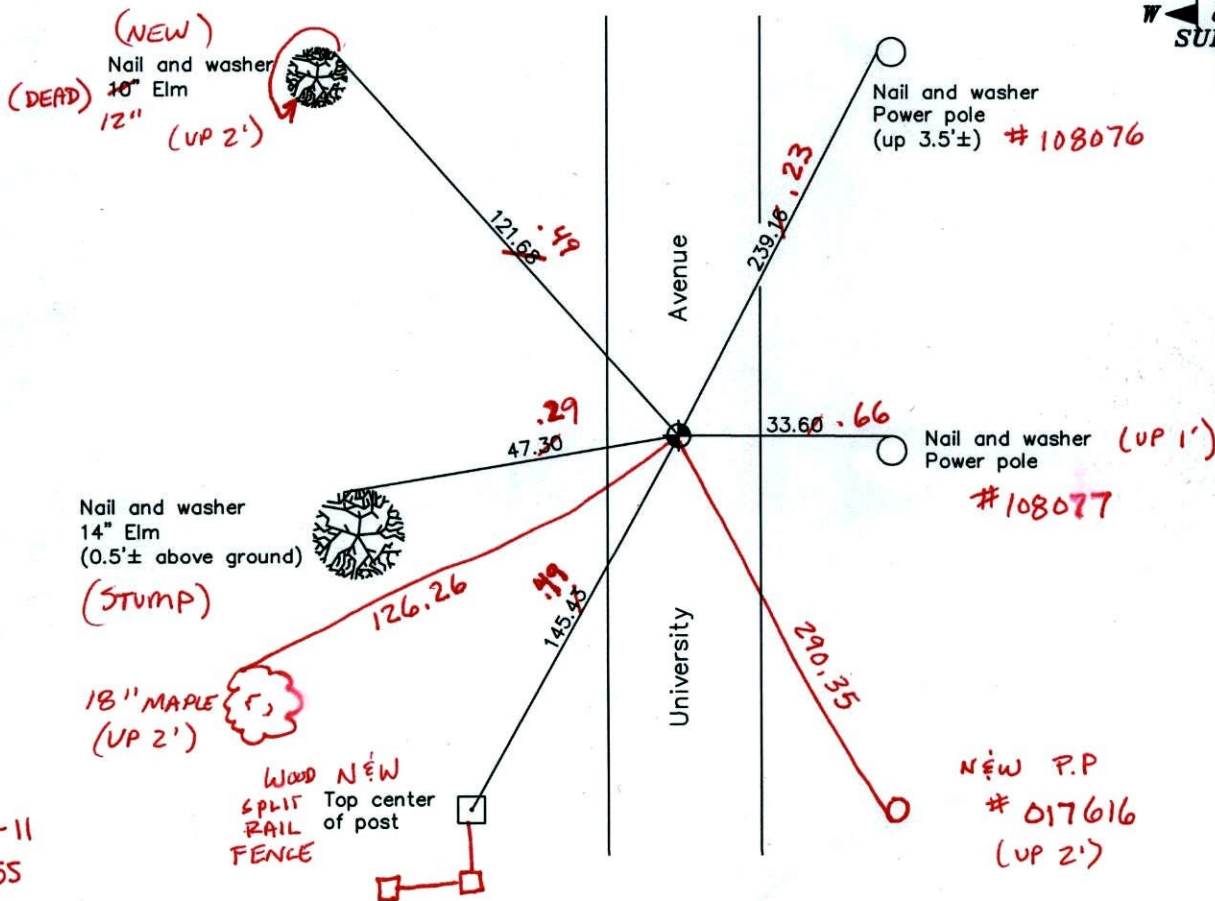 (NEW)
Nail and washer
(DEAD) 10" Elm
12"
(UP 2')
W
Nail and washer
Power pole
(up 3.5'±) # 108076
121.68 .49
239.16 .23
Avenue
47.30 .29
33.60 .66
Nail and washer (UP 1')
Power pole
# 108077
Nail and washer
14" Elm
(0.5'± above ground)
(STUMP)
126.26
145.43 .49
University
290.35
18" MAPLE
(UP 2')
WOOD N&W
SPLIT Top center
RAIL of post
FENCE
N&W P.P
# 017616
(UP 2')
-11